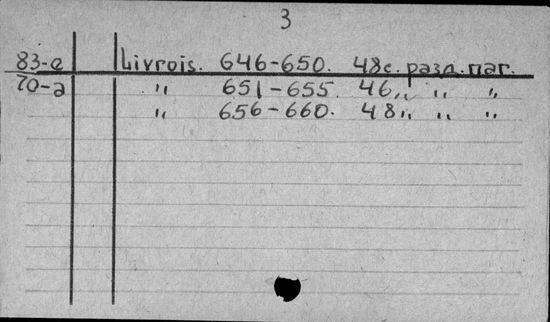 3
83-е Livrois. 646-650. 48с. разд. паг.
70-а " 651-655. 46 " " "
" 656-660. 48 " " "